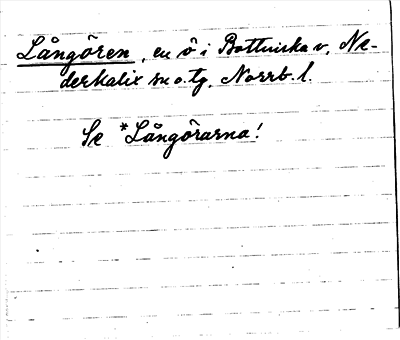 Långören, en ö i Bottniska v, Ne-
derkalix sn o. tg, Norrb. l.
Se *Långörarna!